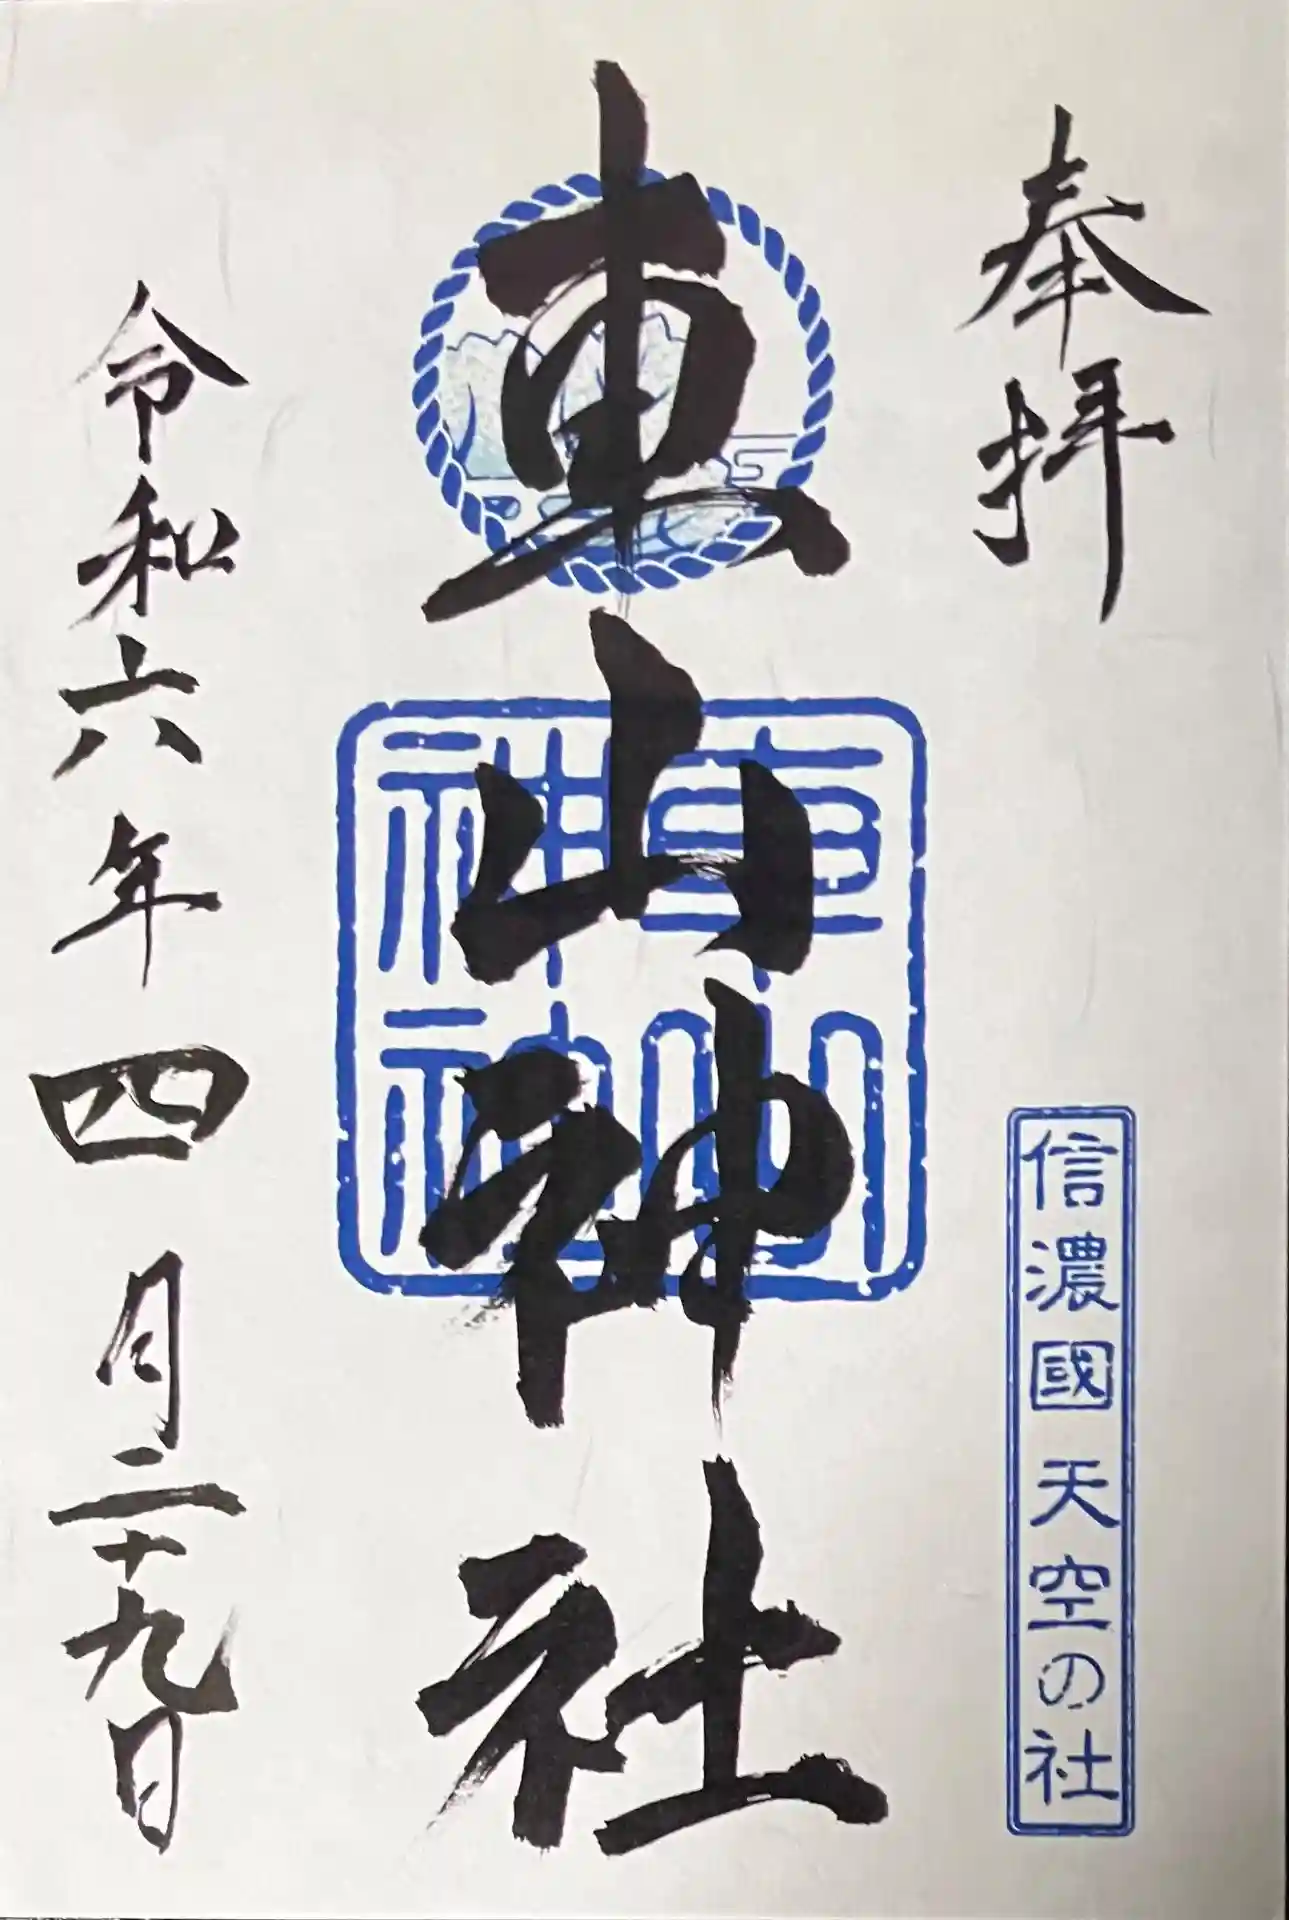 奉拝
信濃國天空の社
車山神社
令和六年四月二十九日